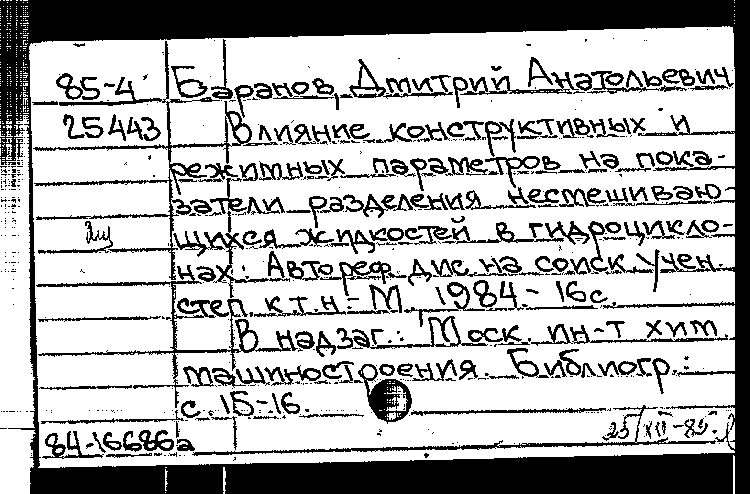 85-4 Баранов, Дмитрий Анатольевич
25443 Влияние конструктивных и
режимных параметров на пока-
затели разделения несмешиваю-
щихся жидкостей в гидроцикло-
нах: Автореф. дис. на соиск. учен.
степ. к.т.н. - М., 1984. - 16 с.
В надзаг.: Моск. ин-т хим.
машиностроения. Библиогр.:
с. 15-16.
84-16686а 25/XII-85.